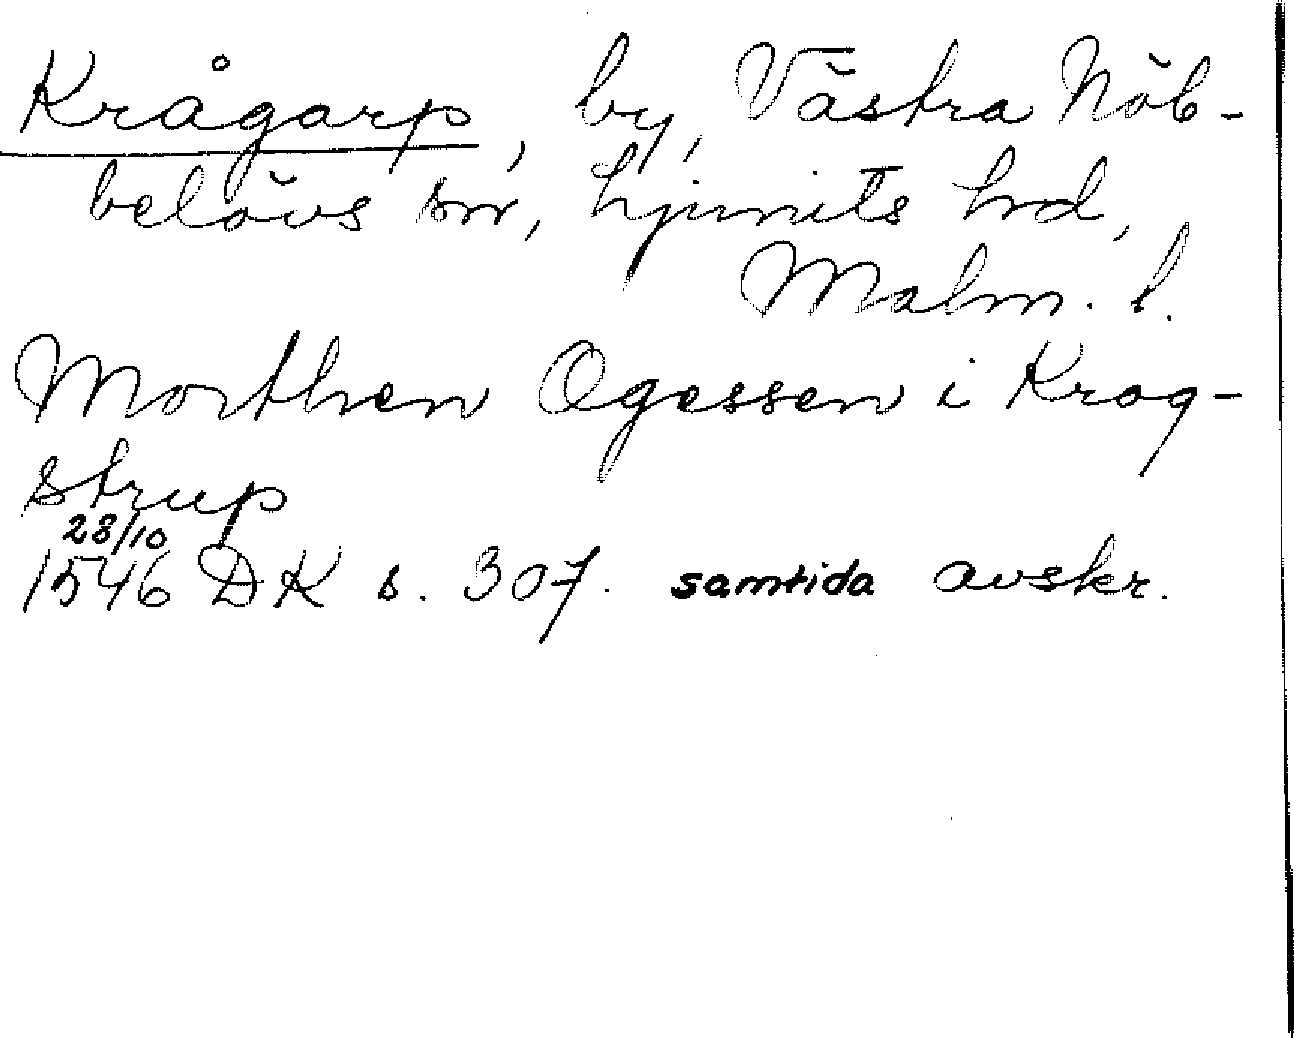 Krågarp, by, Västra Nöb-
belövs sn, Ljunits hrd,
Malm. l.
Morthen Ogessen i Krog-
strup
28/10
1546 DK s. 307. samtida avskr.